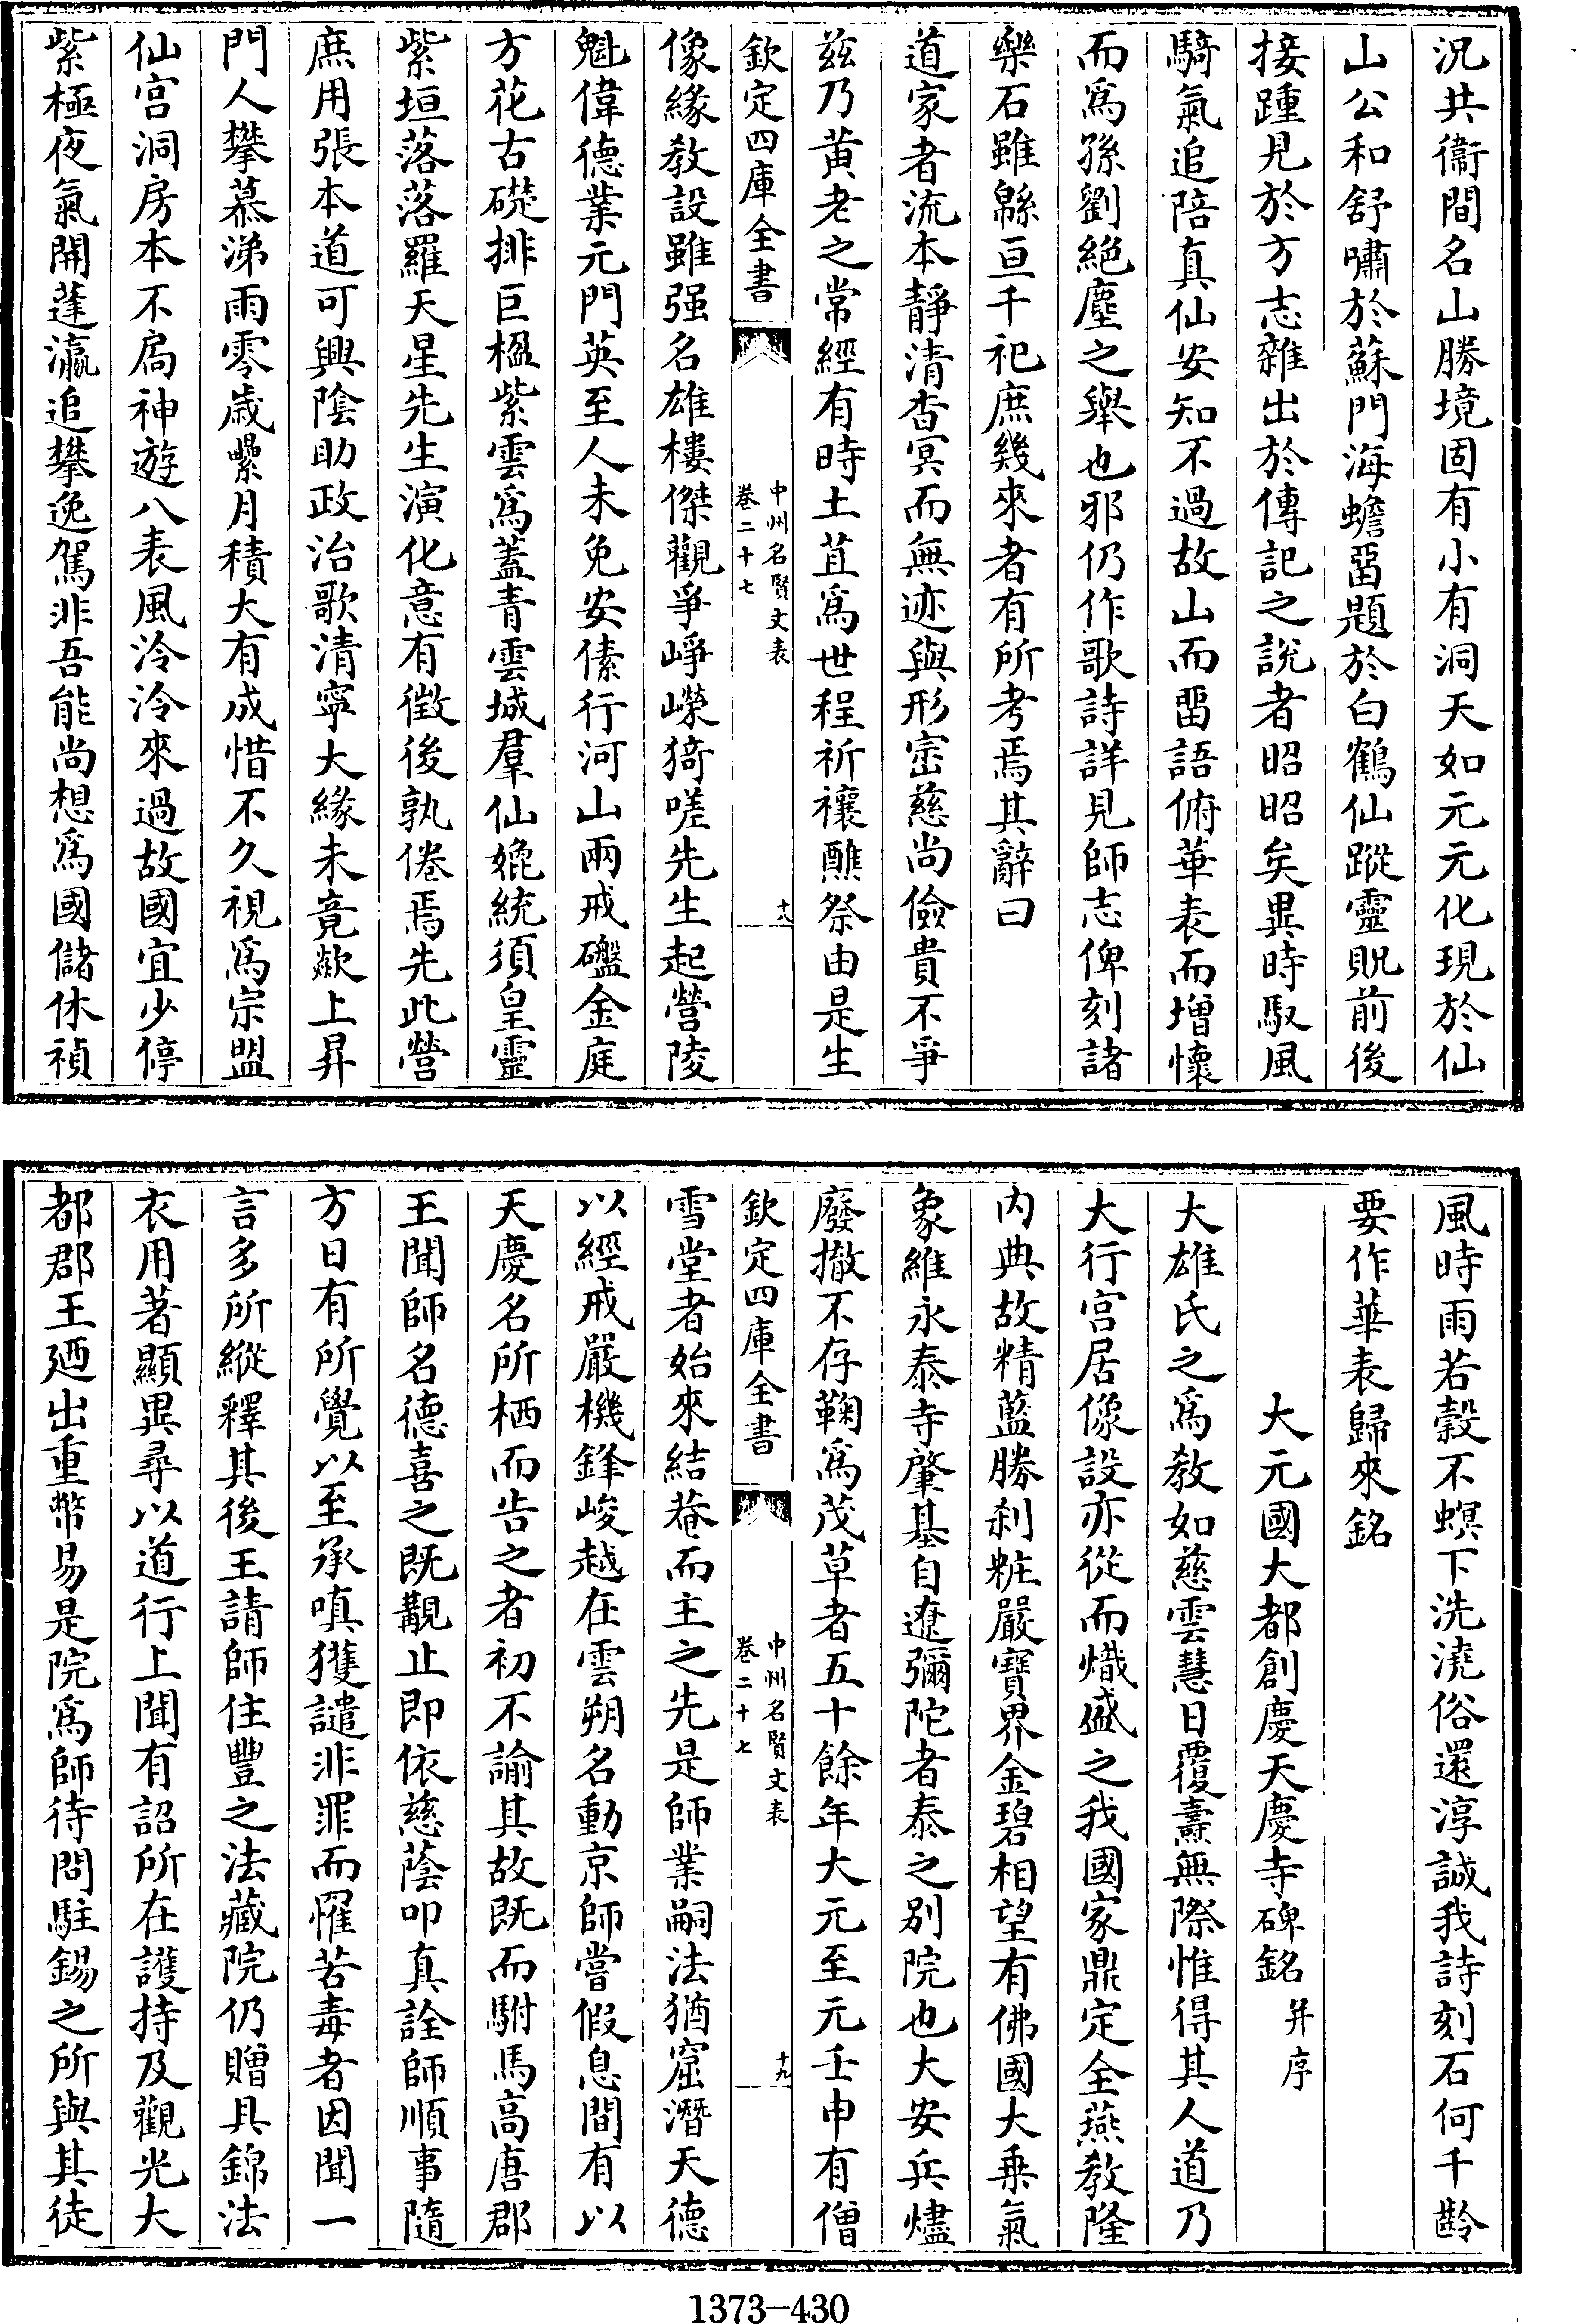 況共衞間名山勝境固有小有洞天如元元化現於仙
山公和舒嘯於蘇門海蟾畱題於白鶴仙蹤靈貺前後
接踵見於方志雜出於傳記之說者昭昭矣異時馭風
騎氣追陪真仙安知不過故山而畱語俯華表而增懷
而爲孫劉絕塵之舉也邪仍作歌詩詳見師志俾刻諸
樂石雖緜亘千祀庶幾來者有所考焉其辭曰
道家者流本靜清杳冥而無迹與形宻慈尚儉貴不爭
兹乃黄老之常經有時土苴爲世程祈禳醮祭由是生
欽定四庫全書
中州名賢文表
卷二十七
十八
像緣教設雖强名雄樓傑觀爭崢嶸猗嗟先生起營陵
魁偉德業元門英至人未免安傃行河山兩戒礷金庭
方花古礎排巨楹紫雲爲蓋青雲城羣仙媲統須皇靈
紫垣落落羅天星先生演化意有徵後孰倦焉先此營
庶用張本道可興陰助政治歌清寧大緣未竟歘上昇
門人攀慕涕雨零歲纍月積大有成惜不久視爲宗盟
仙宫洞房本不扃神遊八表風泠泠來過故國宜少停
紫極夜氣開蓬瀛追攀逸駕非吾能尚想爲國儲休禎
風時雨若穀不螟下洗澆俗還淳誠我詩刻石何千齡
要作華表歸來銘
大元國大都創慶天慶寺碑銘并序
大雄氏之爲教如慈雲慧日覆燾無際惟得其人道乃
大行宫居像設亦從而熾盛之我國家鼎定全燕教隆
内典故精藍勝刹粧嚴寶界金碧相望有佛國大乗氣
象維永泰寺肇基自遼彌陀者泰之别院也大安兵燼
廢撤不存鞠爲茂草者五十餘年大元至元壬申有僧
欽定四庫全書
中州名賢文表
卷二十七
十九
雪堂者始來結菴而主之先是師業嗣法猶窟潛天德
以經戒嚴機鋒峻越在雲朔名動京師嘗假息間有以
天慶名所栖而告之者初不諭其故既而駙馬高唐郡
王聞師名德喜之既觏止即依慈蔭叩真詮師順事隨
方日有所覺以至承嗔獲譴非罪而罹苦毒者因聞一
言多所縱釋其後王請師住豐之法藏院仍贈具錦法
衣用著顯異尋以道行上聞有詔所在護持及觀光大
都郡王廼出重幣易是院爲師待問駐錫之所與其徒
1373-430